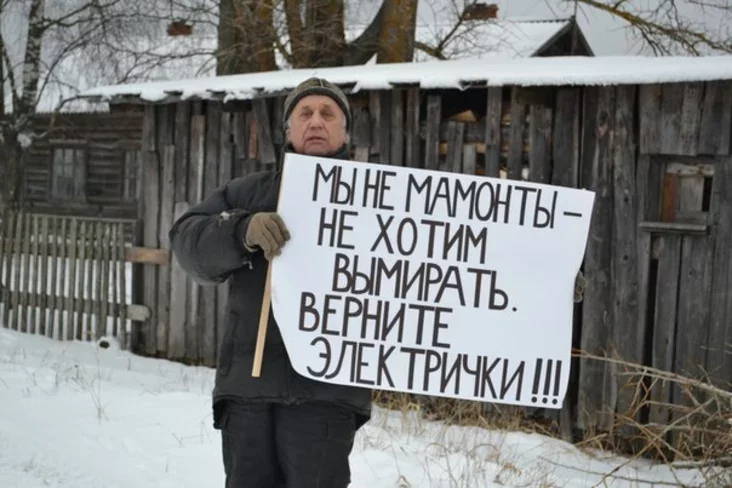 МЫ НЕ МАМОНТЫ –
НЕ ХОТИМ
ВЫМИРАТЬ.
ВЕРНИТЕ
ЭЛЕКТРИЧКИ!!!